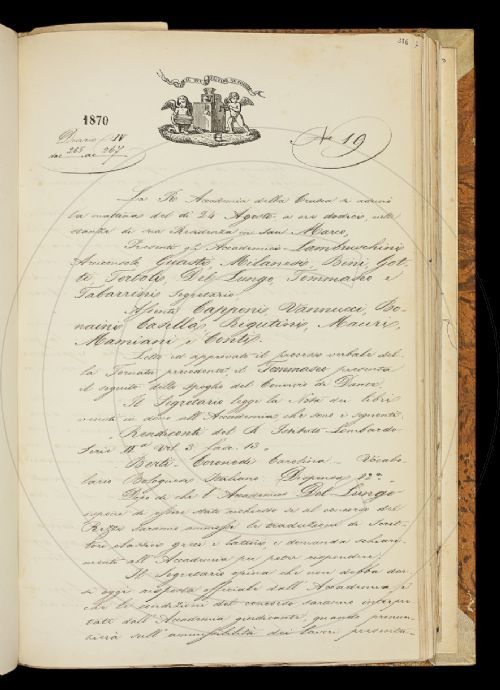 316
1870
Diario IV
dac 265 ac 267
N.° 19
La R. Accademia della Crusca si adunò
la mattina del dì 24 Agosto a ore dodici, nelle
stanze di sua Residenza in San Marco.
Presenti gli Accademici Lambruschini
Arciconsolo, Guasti, Milanesi, Bini, Got-
ti, Tortoli, Del Lungo, Tommaseo e
Tabarrini Segretario.
Assenti Capponi, Vannucci, Bo-
naini, Casella, Rigutini, Mauri,
Mamiani e Conti.
Letto ed approvato il processo verbale del-
la Tornata precedente, il Tommaseo presenta
il seguito dello spoglio del Convivio di Dante.
Il Segretario legge la Nota dei libri
venuti in dono all'Accademia che sono i seguenti
Rendiconti del R. Istituto Lombardo
Serie IIa Vol. 3 fasc. 13
Berti Coronedi Carolina Vocabo-
lario Bolognese Italiano Dispensa 12a
Dopo di che l'Accademico Del Lungo
espone di essere stato richiesto se al concorso del
Rezzi saranno ammesse le traduzioni di Scrit-
tori classici greci e latini, e domanda schiari-
menti all'Accademia per poter rispondere.
Il Segretario opina che non debba dar-
si oggi risposta officiale dall'Accademia e
che le condizioni del concorso saranno interpre-
tate dall'Accademia giudicante, quando pronun-
zierà sull'ammissibilità dei lavori presenta-